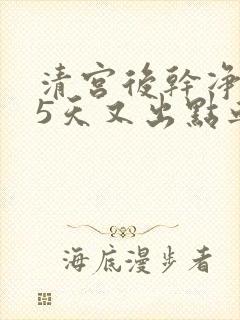 清宮後幹淨
5天又出點
海底漫步者